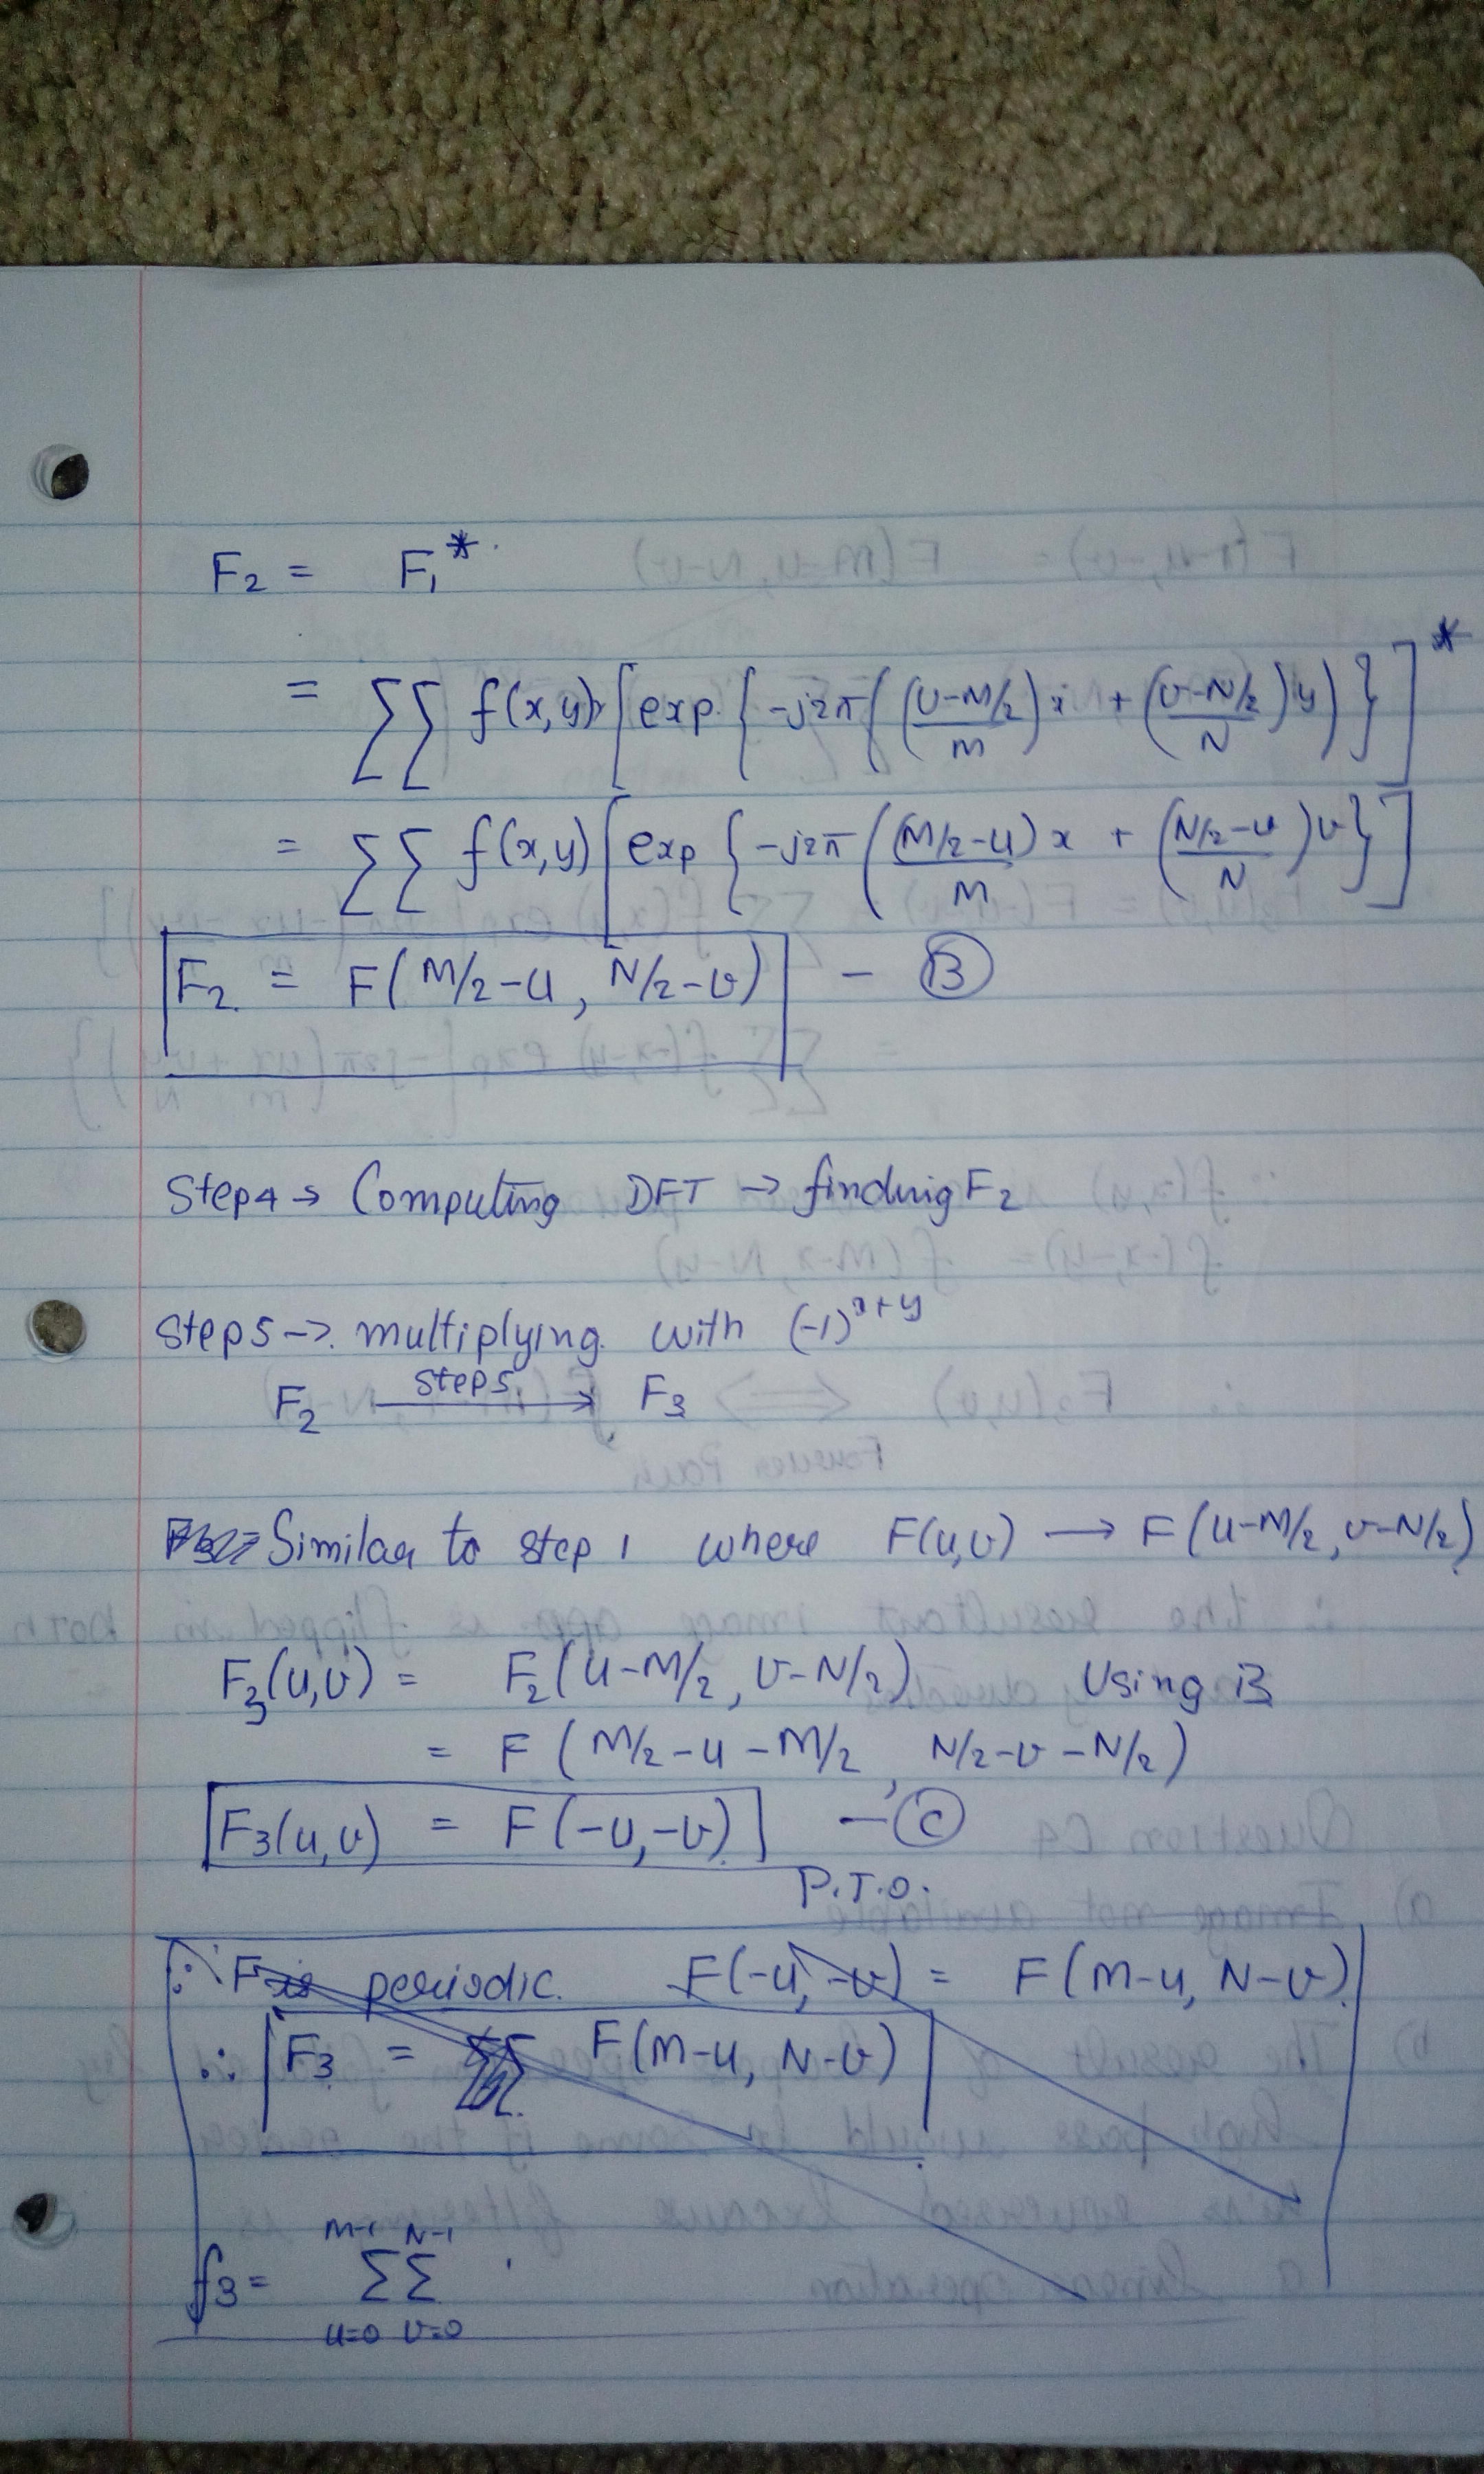 F₂ = F₁*
= ΣΣ f(x,y) [exp {-j2π((U-M/2)/M x + (v-N/2)/N y)}]*
= ΣΣ f(x,y) [exp {-j2π((M/2-u)/M x + (N/2-v)/N v)}]
F₂ = F(M/2-u, N/2-v) - Ⓑ
Step4 → Computing DFT → finding F₂
Step5 → multiplying with (-1)^(x+y)
F₂ —step5→ F₃
Similar to step 1 where F(u,v) → F(u-M/2, v-N/2)
F₃(u,v) = F₂(u-M/2, v-N/2) Using B
= F(M/2-u-M/2, N/2-v-N/2)
F₃(u,v) = F(-u,-v) - Ⓒ
P.T.O.
∵ F is periodic. F(-u,-v) = F(M-u, N-v)
∴ F₃ = F(M-u, N-v)
f₃ = Σ_{u=0}^{M-1} Σ_{v=0}^{N-1}